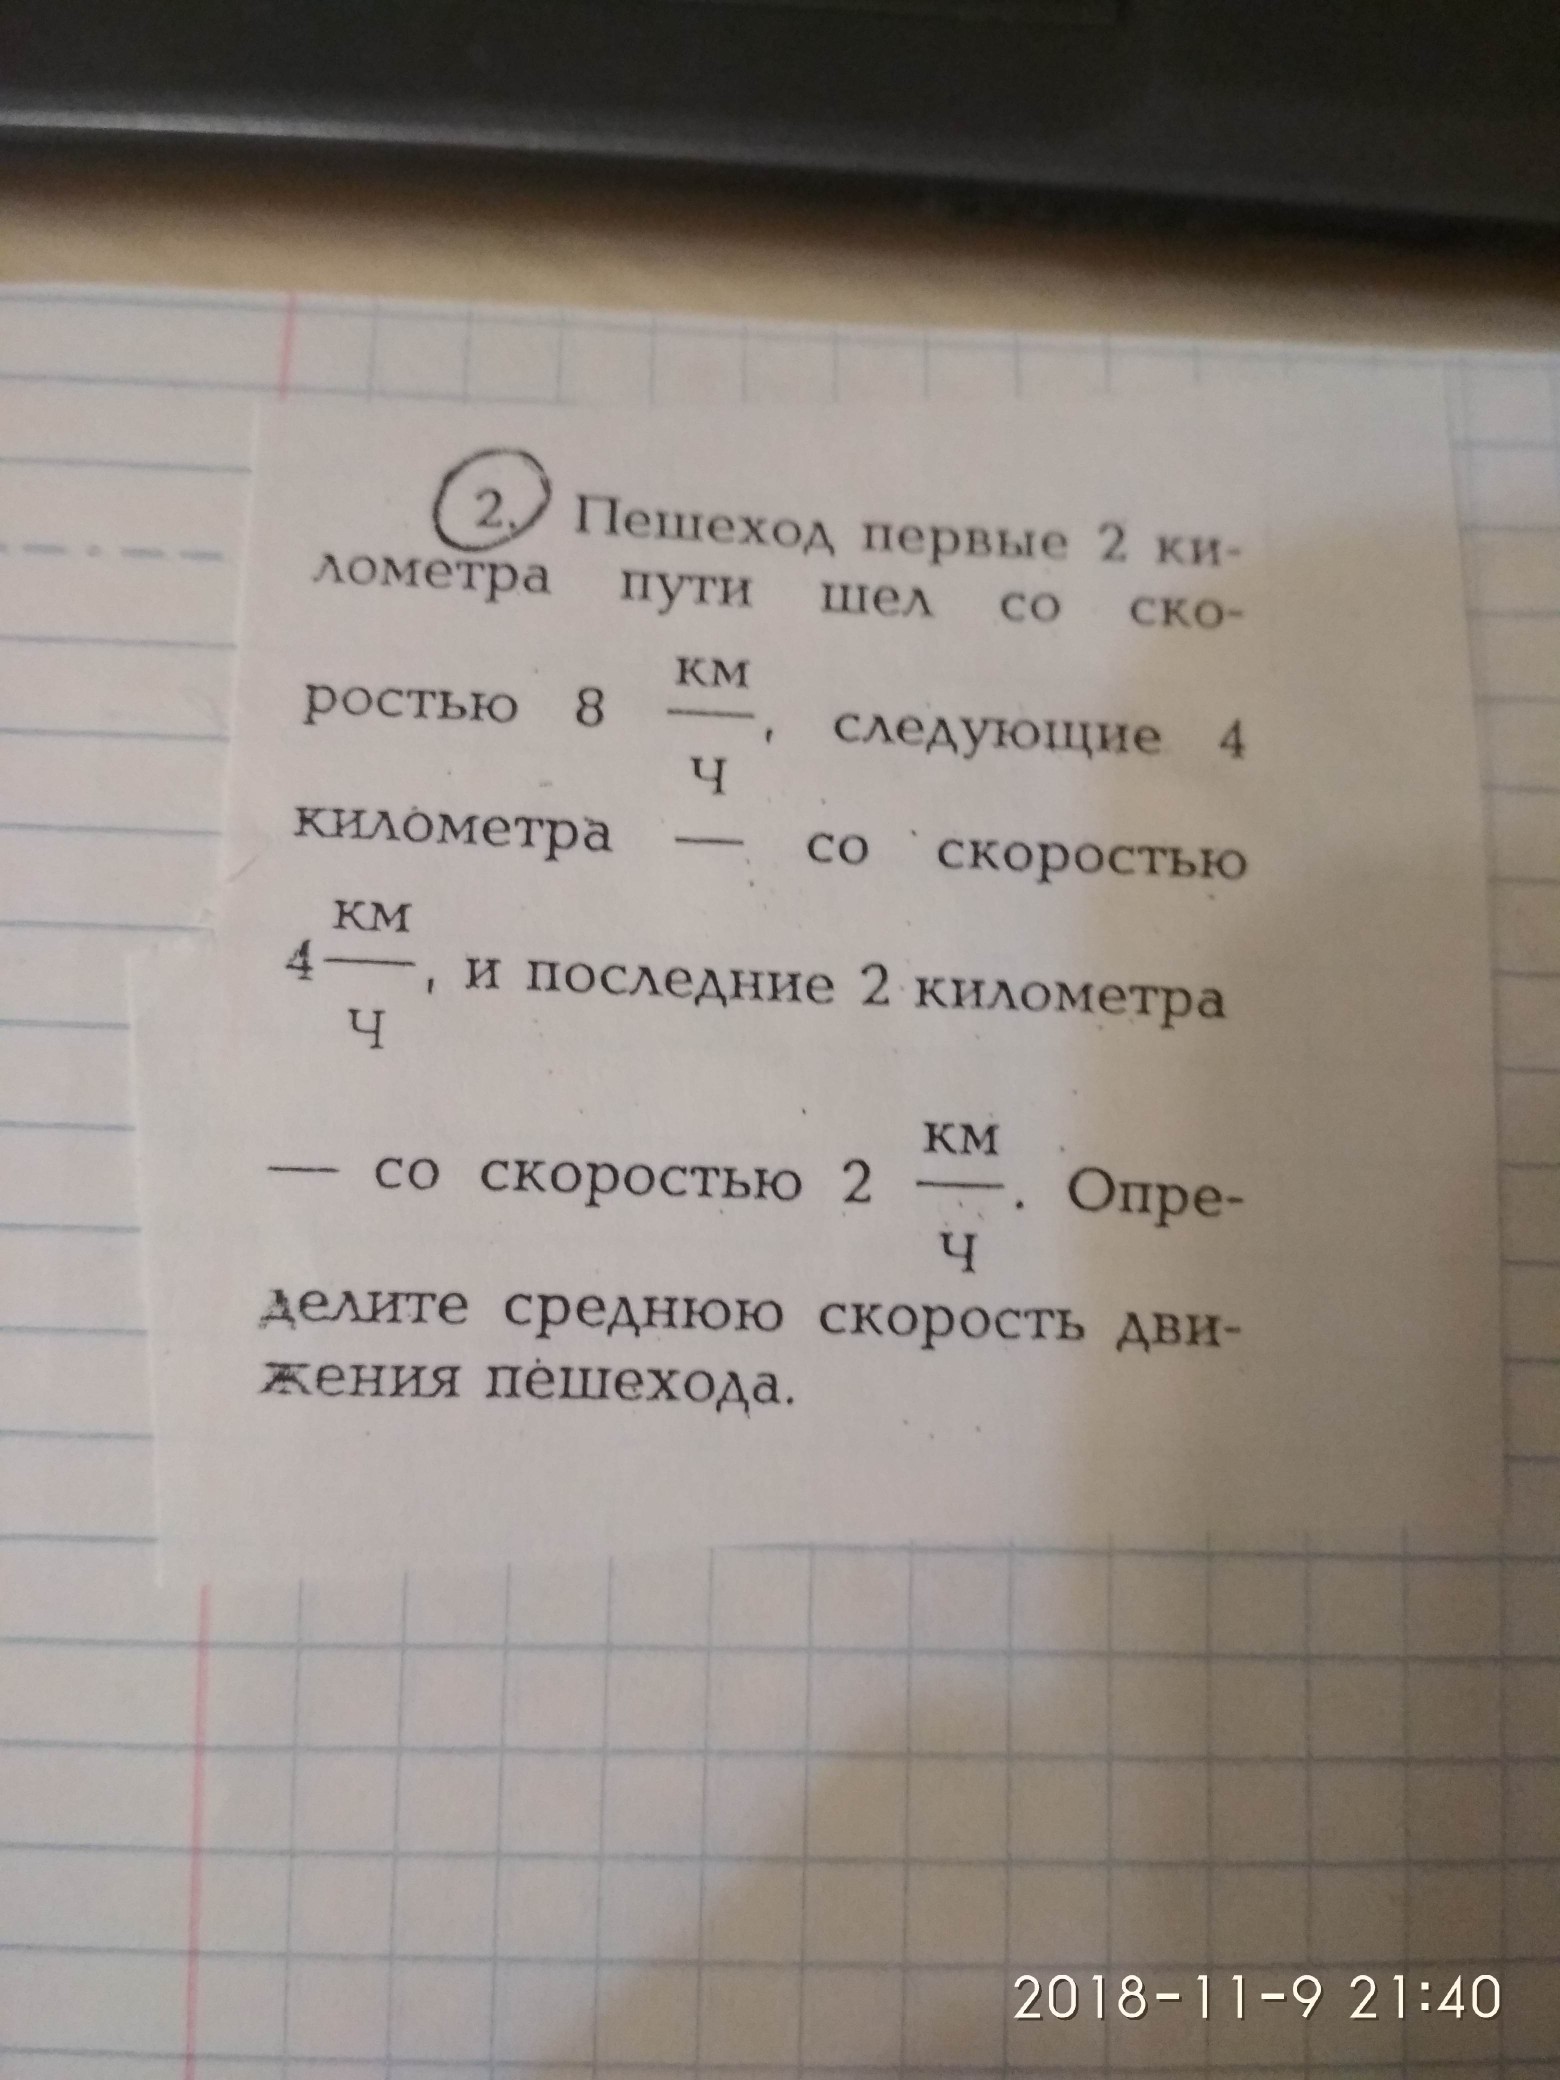 2. Пешеход первые 2 ки-
лометра пути шел со ско-
ростью 8 км/ч, следующие 4
километра — со скоростью
4 км/ч, и последние 2 километра
— со скоростью 2 км/ч. Опре-
делите среднюю скорость дви-
жения пешехода.
2018-11-9 21:40